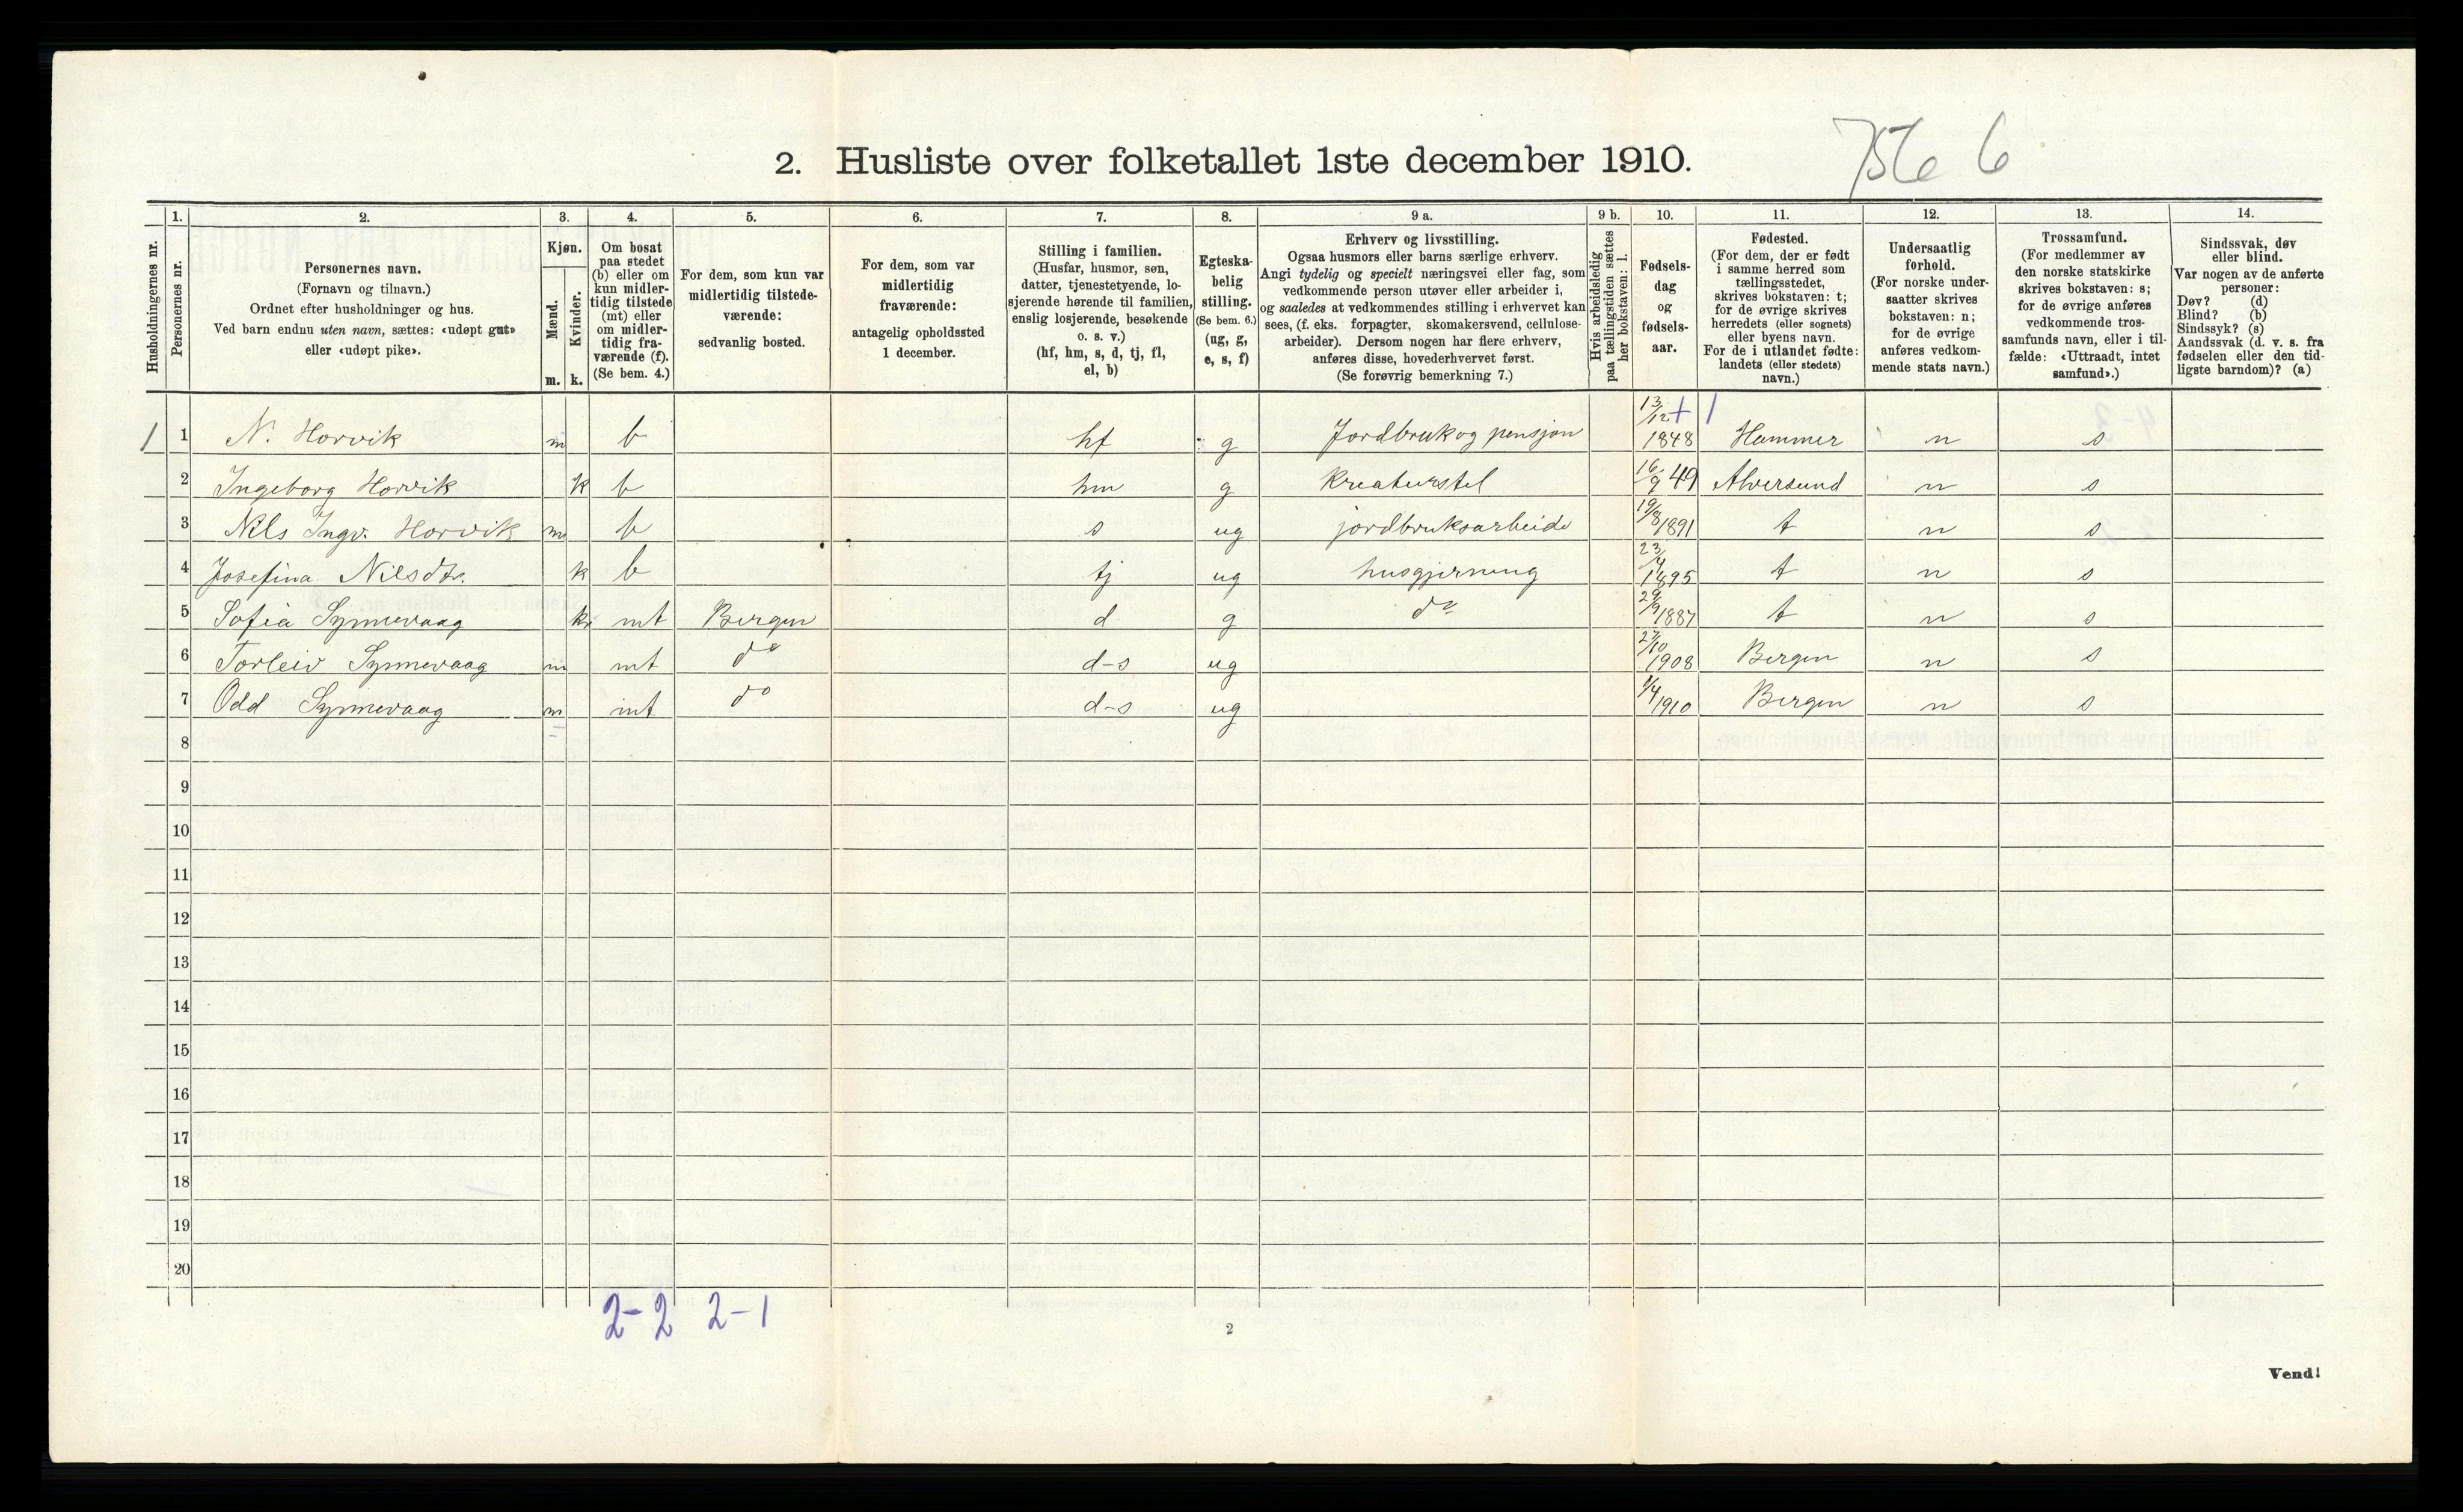 2. Husliste over folketallet 1ste december 1910.
6
1. 2. 3. 4. 5. 6. 7. 8. 9 a. 9 b. 10. 11. 12. 13. 14.
Husholdningernes nr.
Personernes nr.
Personernes navn.
(Fornavn og tilnavn.)
Ordnet efter husholdninger og hus.
Ved barn endnu uten navn, sættes: «udøpt gut»
eller «udøpt pike».
Kjøn.
Mænd.
Kvinder.
m. k.
Om bosat
paa stedet
(b) eller om
kun midler-
tidig tilstede
(mt) eller
om midler-
tidig fra-
værende (f).
(Se bem. 4.)
For dem, som kun var
midlertidig tilstede-
værende:
sedvanlig bosted.
For dem, som var
midlertidig
fraværende:
antagelig opholdssted
1 december.
Stilling i familien.
(Husfar, husmor, søn,
datter, tjenestetyende, lo-
sjerende hørende til familien,
enslig losjerende, besøkende
o. s. v.)
(hf, hm, s, d, tj, fl,
el, b)
Egteska-
belig
stilling.
(Se bem. 6.)
(ug, g,
e, s, f)
Erhverv og livsstilling.
Ogsaa husmors eller barns særlige erhverv.
Angi tydelig og specielt næringsvei eller fag, som
vedkommende person utøver eller arbeider i,
og saaledes at vedkommendes stilling i erhvervet kan
sees, (f. eks. forpagter, skomakersvend, cellulose-
arbeider). Dersom nogen har flere erhverv,
anføres disse, hovederhvervet først.
(Se forøvrig bemerkning 7.)
Hvis arbeidsledig
paa tællingstiden sættes
her bokstaven: l.
Fødsels-
dag
og
fødsels-
aar.
Fødested.
(For dem, der er født
i samme herred som
tællingsstedet,
skrives bokstaven: t;
for de øvrige skrives
herredets (eller sognets)
eller byens navn.
For de i utlandet fødte:
landets (eller stedets)
navn.)
Undersaatlig
forhold.
(For norske under-
saatter skrives
bokstaven: n;
for de øvrige
anføres vedkom-
mende stats navn.)
Trossamfund.
(For medlemmer av
den norske statskirke
skrives bokstaven: s;
for de øvrige anføres
vedkommende tros-
samfunds navn, eller i til-
fælde: «Uttraadt, intet
samfund».)
Sindssvak, døv
eller blind.
Var nogen av de anførte
personer:
Døv? (d)
Blind? (b)
Sindssyk? (s)
Aandssvak (d. v. s. fra
fødselen eller den tid-
ligste barndom)? (a)
1 1 N. Horvik m b hf g Jordbruk og pensjon 13/12 1848 Hammer n s
2 Ingeborg Horvik k b hm g Kreaturstel 16/9 49 Alversund n s
3 Nils Ingv. Horvik m b s ug jordbruksarbeide 19/8 1891 t n s
4 Josefina Nilsdtr. k b tj ug husgjerning 23/4 1895 t n s
5 Sofia Synnevaag k mt Bergen d g do 29/9 1887 t n s
6 Torleiv Synnevaag m mt do d-s ug 27/10 1908 Bergen n s
7 Odd Synnevaag m mt do d-s ug 1/4 1910 Bergen n s
8
9
10
11
12
13
14
15
16
17
18
19
20
2-2 2-1
2
Vend!